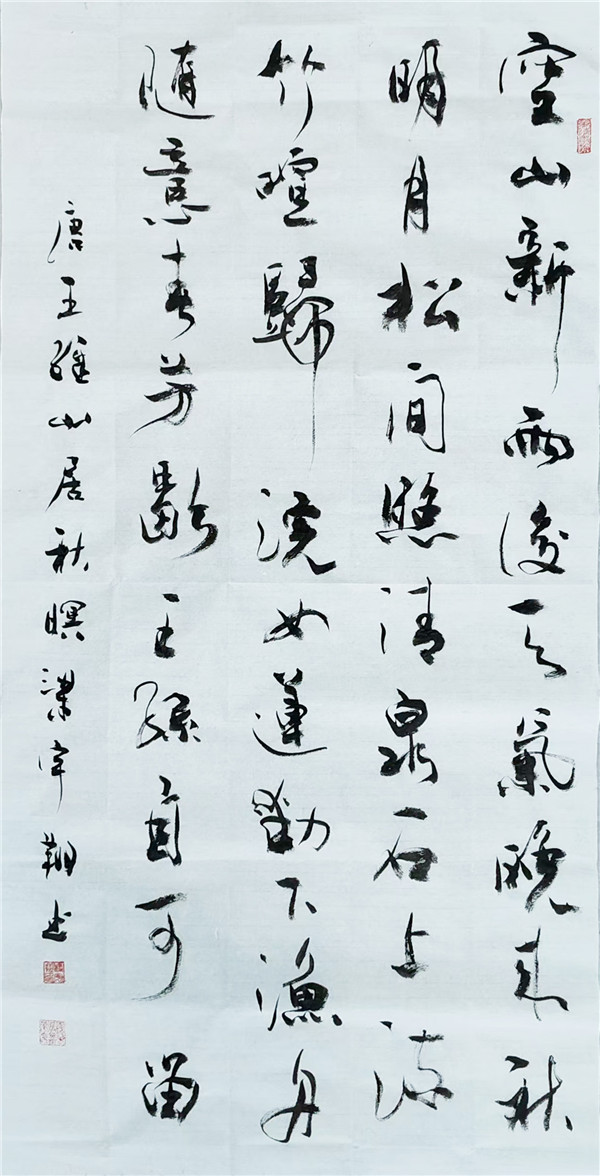 空山新雨後天氣晚来秋
明月松间照清泉石上流
竹喧歸浣女蓮動下漁舟
隨意春芳歇王孫自可留
唐王維山居秋暝梁书